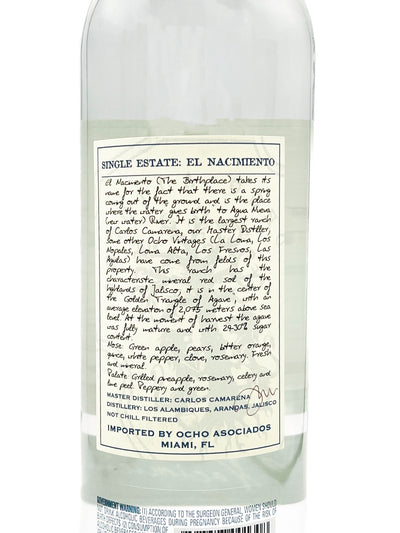 SINGLE ESTATE: EL NACIMIENTO
El Nacimiento (The Birthplace) takes its
name for the fact that there is a spring
coming out of the ground and is the place
where the water gives birth to Agua Nueva
(new water) River. It is the largest ranch
of Carlos Camarena, our Master Distiller,
some other Ocho Vintages (La Loma, Los
Nopales, Loma Alta, Los Fresnos, Las
Aguilas) have come from fields of this
property. This ranch has the
characteristic mineral red soil of the
highlands of Jalisco, it is in the center of
the Golden Triangle of Agave, with an
average elevation of 2,075 meters above sea
level. At the moment of harvest the agave
was fully mature and with 29.30% sugar
content.
Nose Green apple, pears, bitter orange,
quince, white pepper, clove, rosemary. Fresh
and mineral.
Palate Grilled pineapple, rosemary, celery and
lime peel. Peppery and green.
MASTER DISTILLER: CARLOS CAMARENA
DISTILLERY: LOS ALAMBIQUES, ARANDAS, JALISCO
NOT CHILL FILTERED
IMPORTED BY OCHO ASOCIADOS
MIAMI, FL
GOVERNMENT WARNING: (1) ACCORDING TO THE SURGEON GENERAL, WOMEN SHOULD
NOT DRINK ALCOHOLIC BEVERAGES DURING PREGNANCY BECAUSE OF THE RISK OF